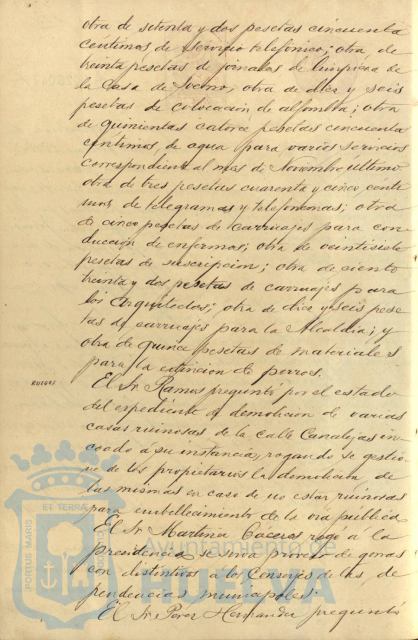 otra de setenta y dos pesetas cincuenta
centimos de servicio telefonico; otra de
treinta pesetas de jornales de limpieza de
la Casa de Socorro; otra de diez y seis
pesetas de colocación de alfombra; otra
de quinientas catorce pesetas cincuenta
centimos de agua para varios servicios
correspondiente al mes de Noviembre último
otra de tres pesetas cuarenta y cinco centi
mos de telegramas y telefonemas; otra
de cinco pesetas de carruajes para con
ducción de enfermos; otra de veintisiete
pesetas de suscripcion; otra de ciento
treinta y dos pesetas de carruajes para
los Arquitectos; otra de diez y seis pese
tas de carruajes para la Alcaldia; y
otra de quince pesetas de materiales
para la extinción de perros.
RUEGOS
El Sr. Ramos preguntó por el estado
del expediente de demolición de varias
casas ruinosas de la calle Canalejas in
coado a su instancia, rogando se gestio
ne de los propietarios la demolición de
las mismas en caso de no estar ruinosas
para embellecimiento de la vía pública.
El Sr. Martin Caceres rogó a la
presidencia se sirva proveer de gorras
con distintivos a los Conserjes de las de
pendencias municipales.
El Sr. Perez Hernandez preguntó
PORTUS MARIS
ET TERRAE
CUSTODIA
Ayuntamiento de
HUELVA